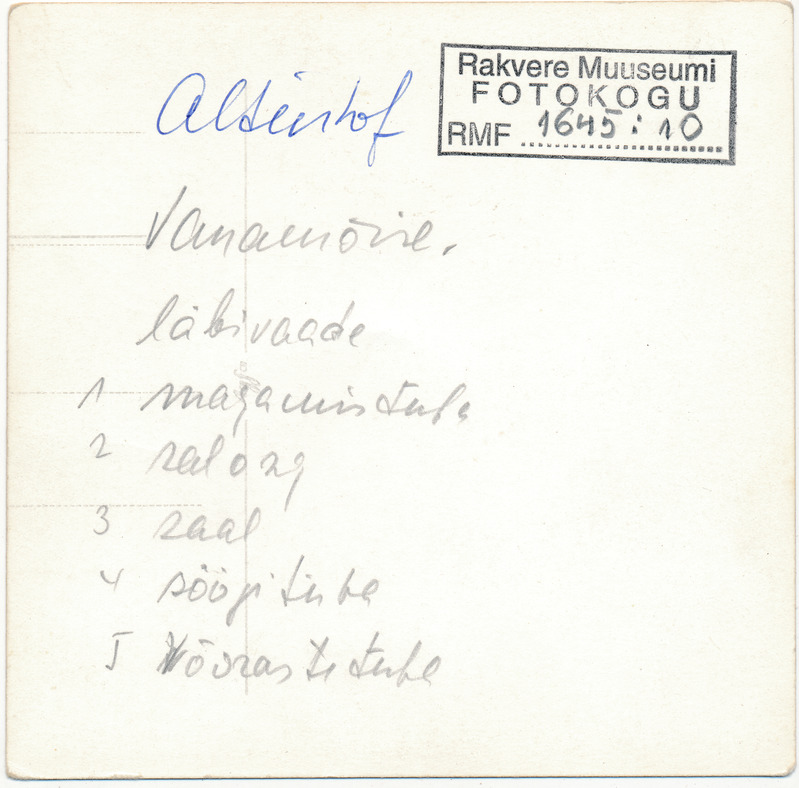 Altenhof
Rakvere Muuseumi
FOTOKOGU
RMF 1645:10
Vanamõise.
läbivaade
1 magamistuba
2 salong
3 saal
4 söögituba
5 Võõrastetuba